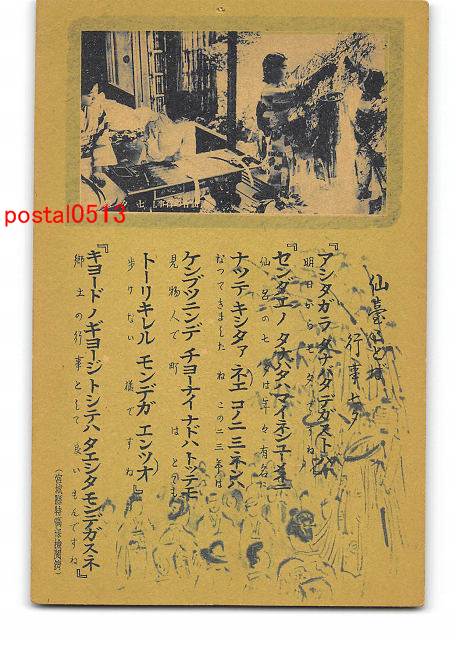 postal0513
七夕
仙臺ことば
行事七夕
『アシタガラ タナバタデガストバ』
明日からたなばたですね
『センダエノ タナバタハマイネンユーメエニ
仙台の七夕は年々有名に
ナッテキシタァ ネエ コノ二三年ハ
なつてきました ね この二三年は
ケンブツニンデ チョーナイナドハトッテモ
見物人で町 はとても
トーリキレル モンデガ エンツォ』
歩けない 様ですね
『キヨードノギヨージトシテハタエシタモンデガスネ』
郷土の行事として良いもんですね
(宮城縣 檢閲濟)